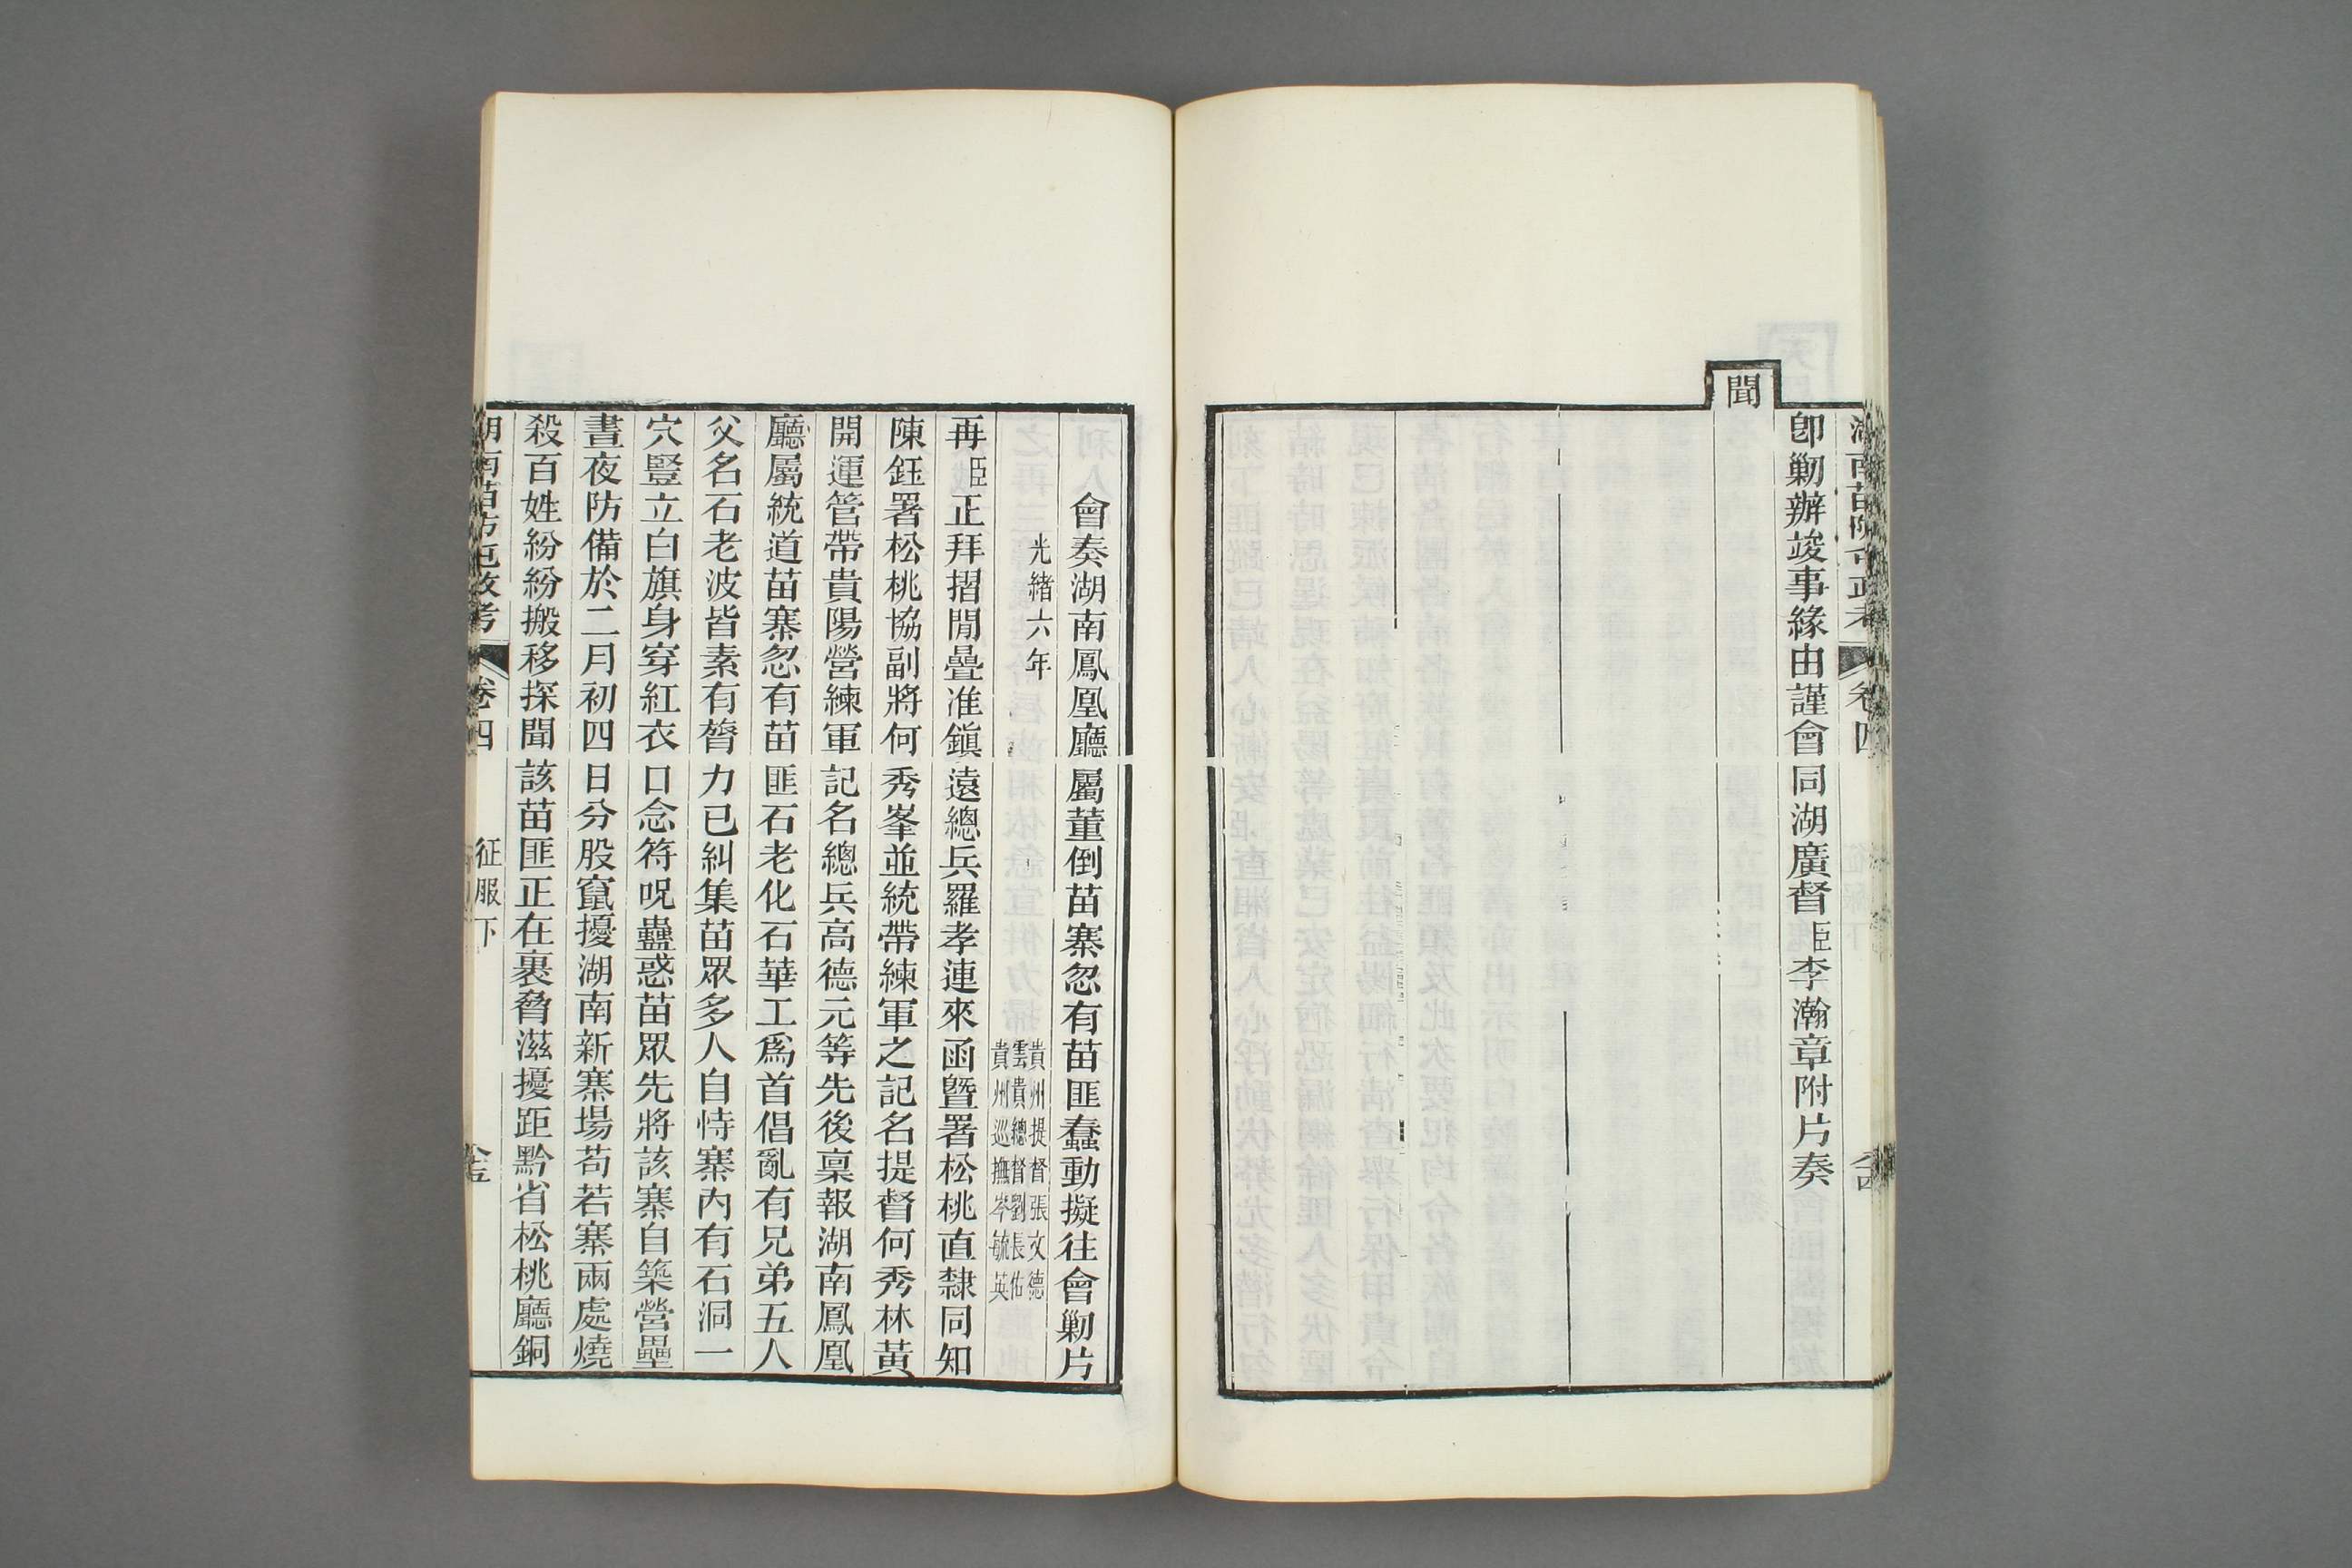 湖南苗防屯政考
卷四
卽勦辦竣事緣由謹會同湖廣督臣李瀚章附片奏
聞
會奏湖南鳳凰廳屬董倒苗寨忽有苗匪蠢動擬往會勦片
光緒六年
貴州提督張文德
雲貴總督劉長佑
貴州巡撫岑毓英
再臣正拜摺閒疊准鎭遠總兵羅孝連來函曁署松桃直隸同知
陳鈺署松桃協副將何秀峯並統帶練軍之記名提督何秀林黃
開運管帶貴陽營練軍記名總兵高德元等先後稟報湖南鳳凰
廳屬統道苗寨忽有苗匪石老化石華工爲首倡亂有兄弟五人
父名石老波皆素有膂力已糾集苗眾多人自恃寨內有石洞一
穴豎立白旗身穿紅衣口念符呪蠱惑苗眾先將該寨自築營壘
晝夜防備於二月初四日分股竄擾湖南新寨場苟若寨兩處燒
殺百姓紛紛搬移探聞該苗匪正在裹脅滋擾距黔省松桃廳銅
湖南苗防屯政考
卷四
征服下